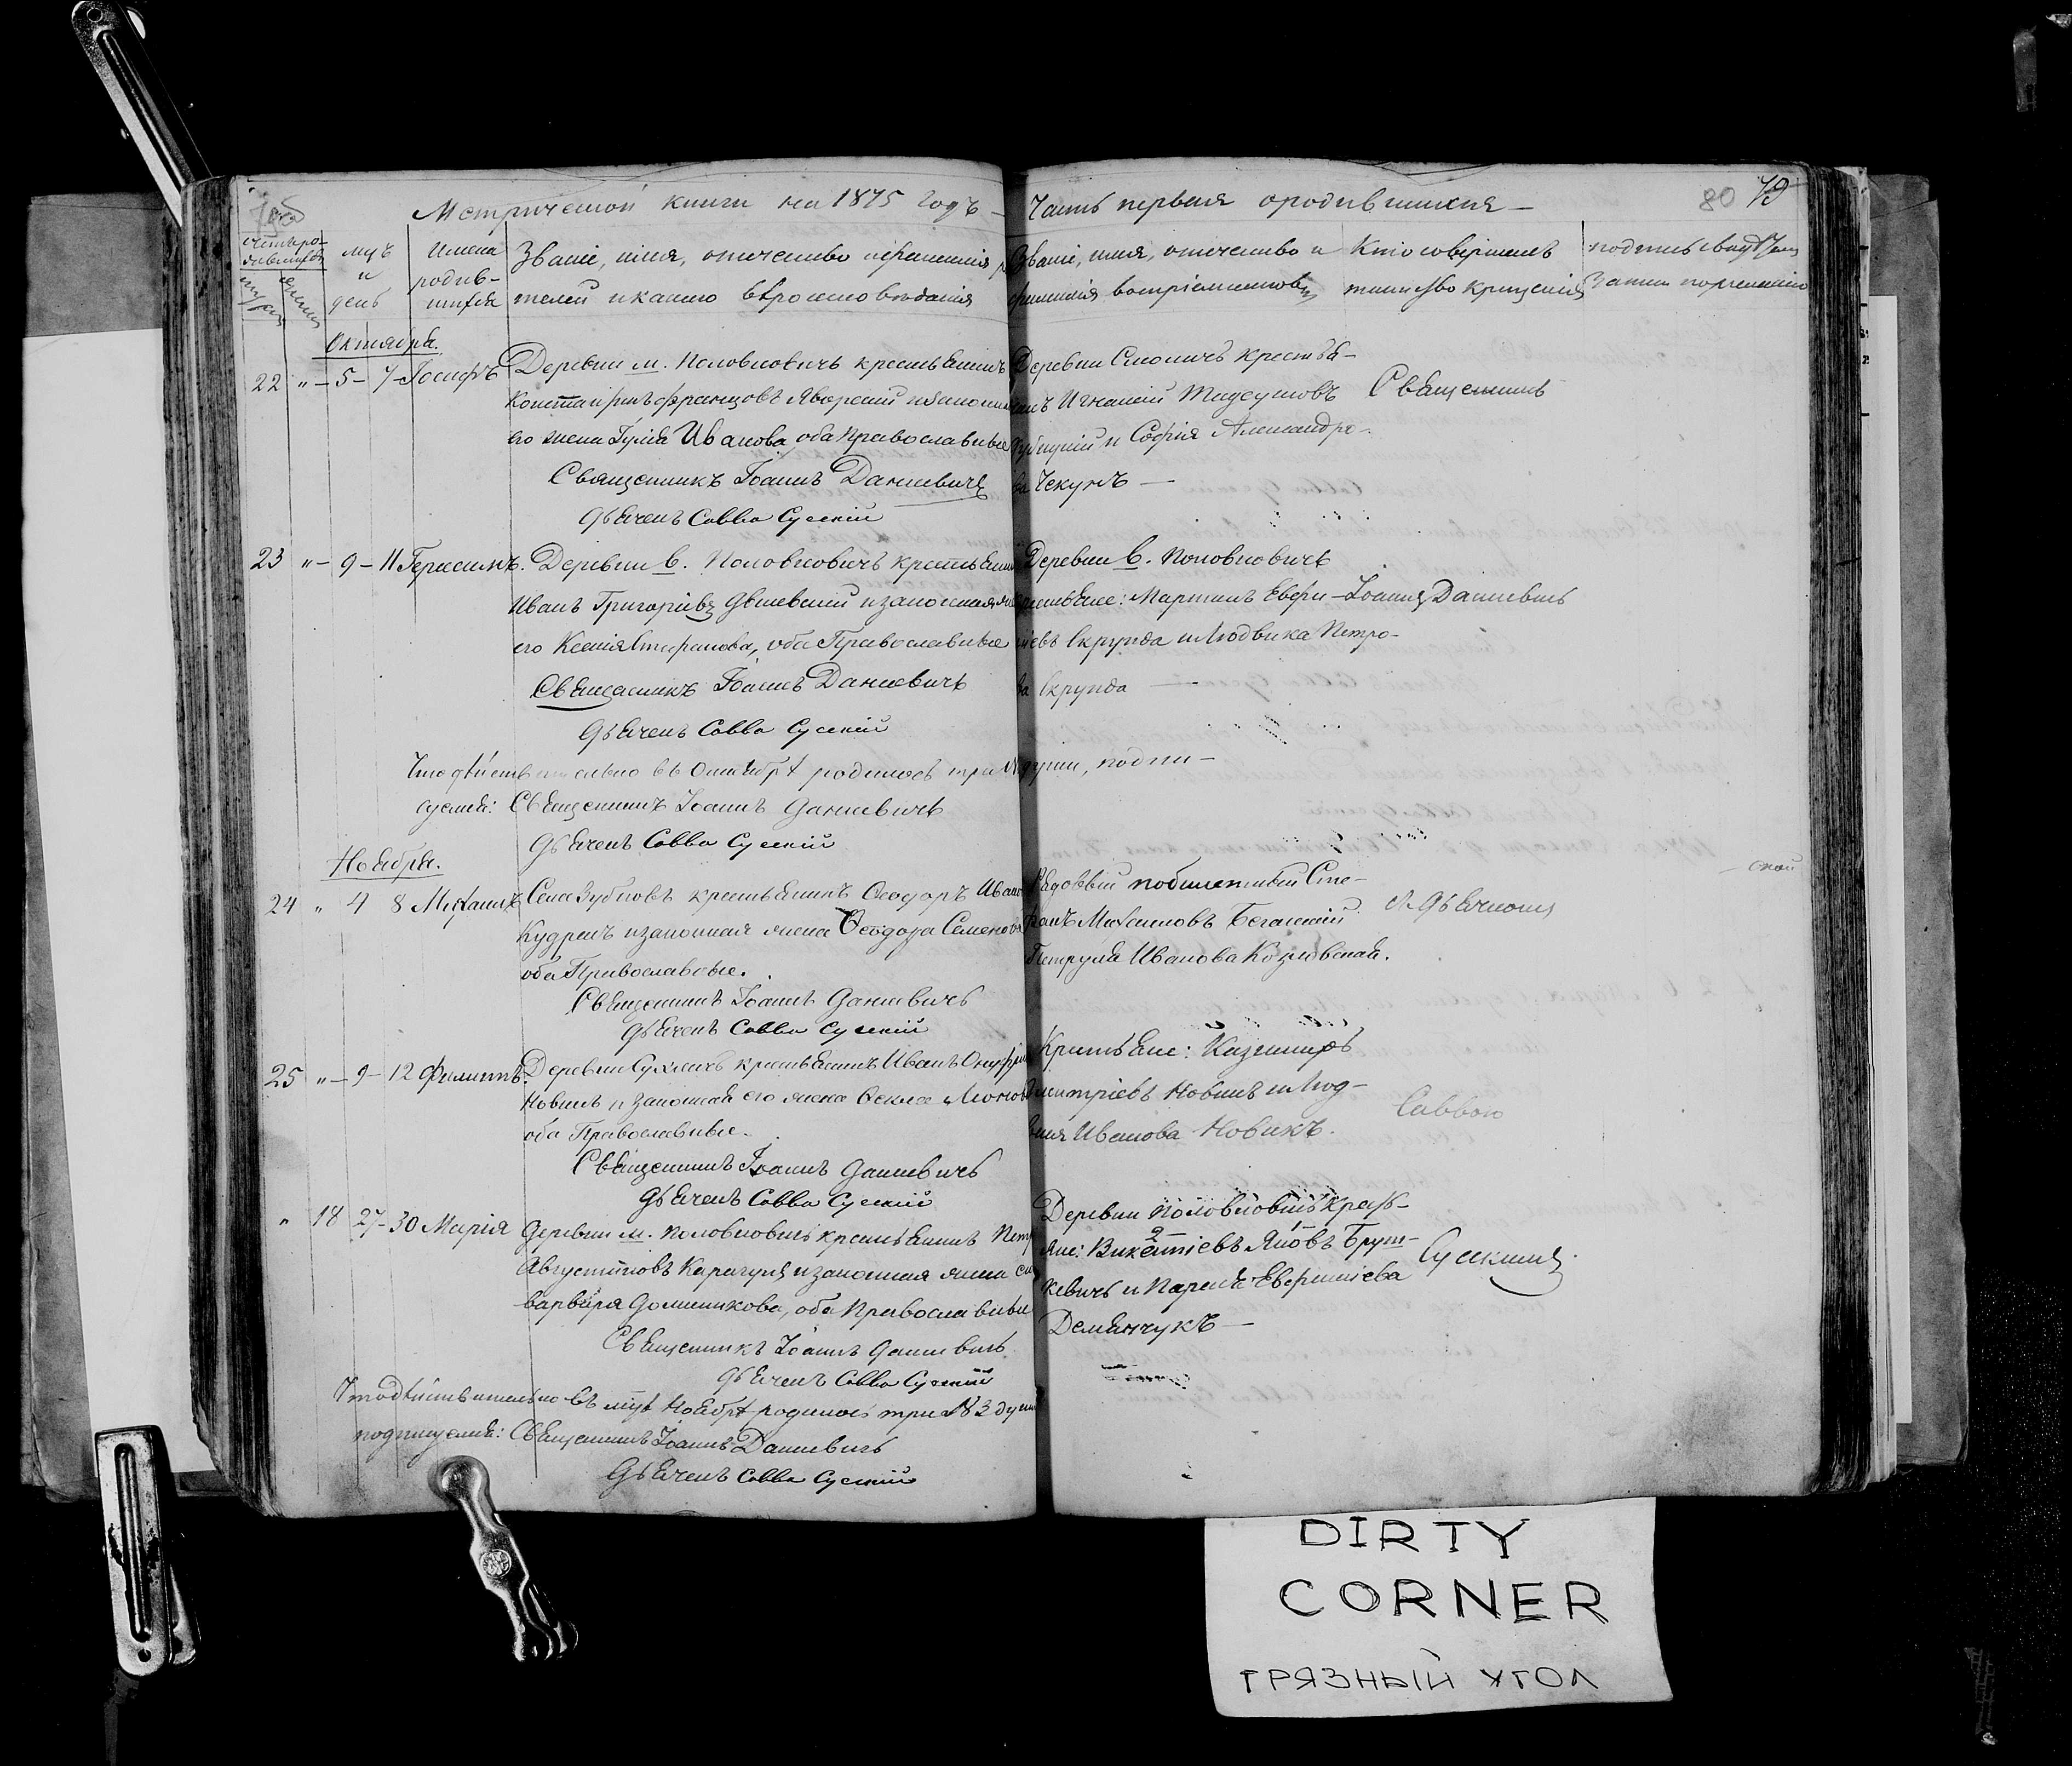 Метрической книги на 1875 годъ —
Часть первая о родившихся —
80 79
Счетъ ро-
дившихся
мужеск
женск
мцъ
и
день
Имена
родив-
шихся
Званіе, имя, отчество и фамилія ро
телей и какого вѣроисповѣданія
Званіе, имя, отчество и
фамилія воспріемниковъ
Кто совершалъ
таинство крещенія
подпись свидѣт
записи по желанію
Октября.
22 „ — 5 — 7 — Іосифъ
Деревни м. Половковичъ крестьянинъ
Францовъ Яворскій и законная
его жена Гулія Иванова, оба Православные
Священникъ Іоаннъ Данкевичъ
Дьячекъ Савва Сускій
Деревни крестья-
нинъ Игнатій
и София Александро-
ва Чекунъ —
Священникъ
23 „ — 9 — 11 Герасимъ.
Деревни В. Половковичъ крестьянинъ
Иванъ Григорьевъ и законная жена
его Ксенія Стефанова, оба Православные
Священникъ Іоаннъ Данкевичъ
Дьячекъ Савва Сускій
Деревни В. Половковичъ
крестьяне: Мартинъ Евфи-
міевъ Скрунда и Людвика Петро-
ва Скрунда —
Іоаннъ Данкевичъ
Что дѣйствительно въ Октябрѣ родилось три № души, подпи-
суемся: Священникъ Іоаннъ Данкевичъ
Дьячекъ Савва Сускій
Ноября.
24 „ 4 8 Михаилъ
Села Зубковъ крестьянинъ Ѳеодоръ Ивано
и законная жена Ѳеодора Семенова
оба Православные.
Священникъ Іоаннъ Данкевичъ
Дьячекъ Савва Сускій
Рядовый побилетный Сте-
фанъ Михаиловъ
Петруля Иванова Козловская.
съ Дьячкомъ
ской
25 „ — 9 — 12 Филиппъ.
Деревни крестьянинъ Иванъ Онуфріев
Новикъ и законная его жена Ѳекла
оба Православные.
Священникъ Іоаннъ Данкевичъ
Дьячекъ Савва Сускій
Крестьяне: Казимиръ
Дмитріевъ Новикъ и Люд-
вика Иванова Новикъ.
Саввою
„ 18 27 — 30 Марія
Деревни м. Половковичъ крестьянинъ Петръ
Августиновъ и законная жена его
Варвара Доминикова, оба Православные
Священникъ Іоаннъ Данкевичъ
Дьячекъ Савва Сускій
Деревни Половковичъ кресть-
яне: Викентіевъ Яковъ Брут-
кевичъ и Евфиміева
Демянчукъ —
Сускимъ.
Что дѣйствительно въ мцѣ Ноябрѣ родилось три № 3 души
подписуемся: Священникъ Іоаннъ Данкевичъ
Дьячекъ Савва Сускій
DIRTY
CORNER
ГРЯЗНЫЙ УГОЛ